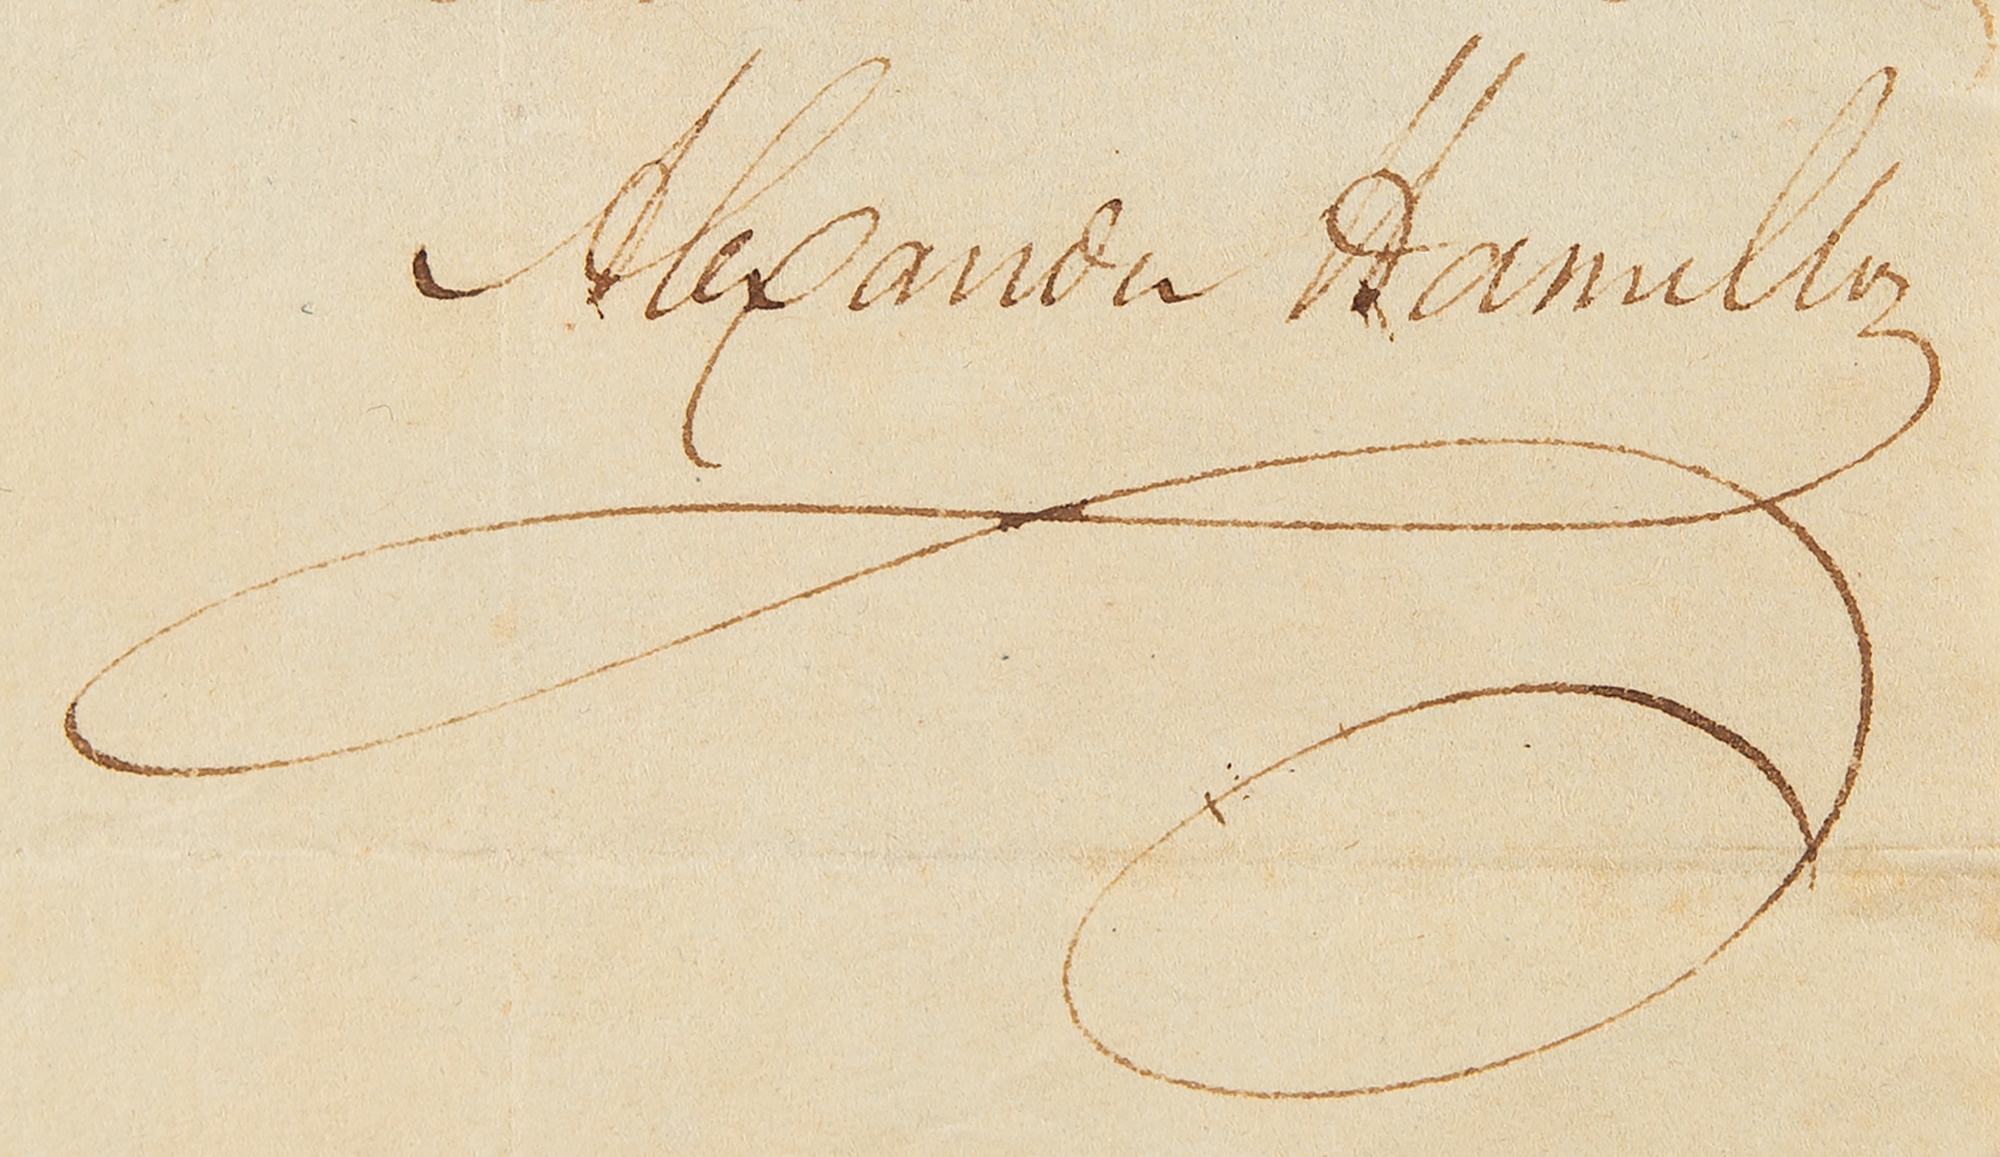 Alexander Hamilton